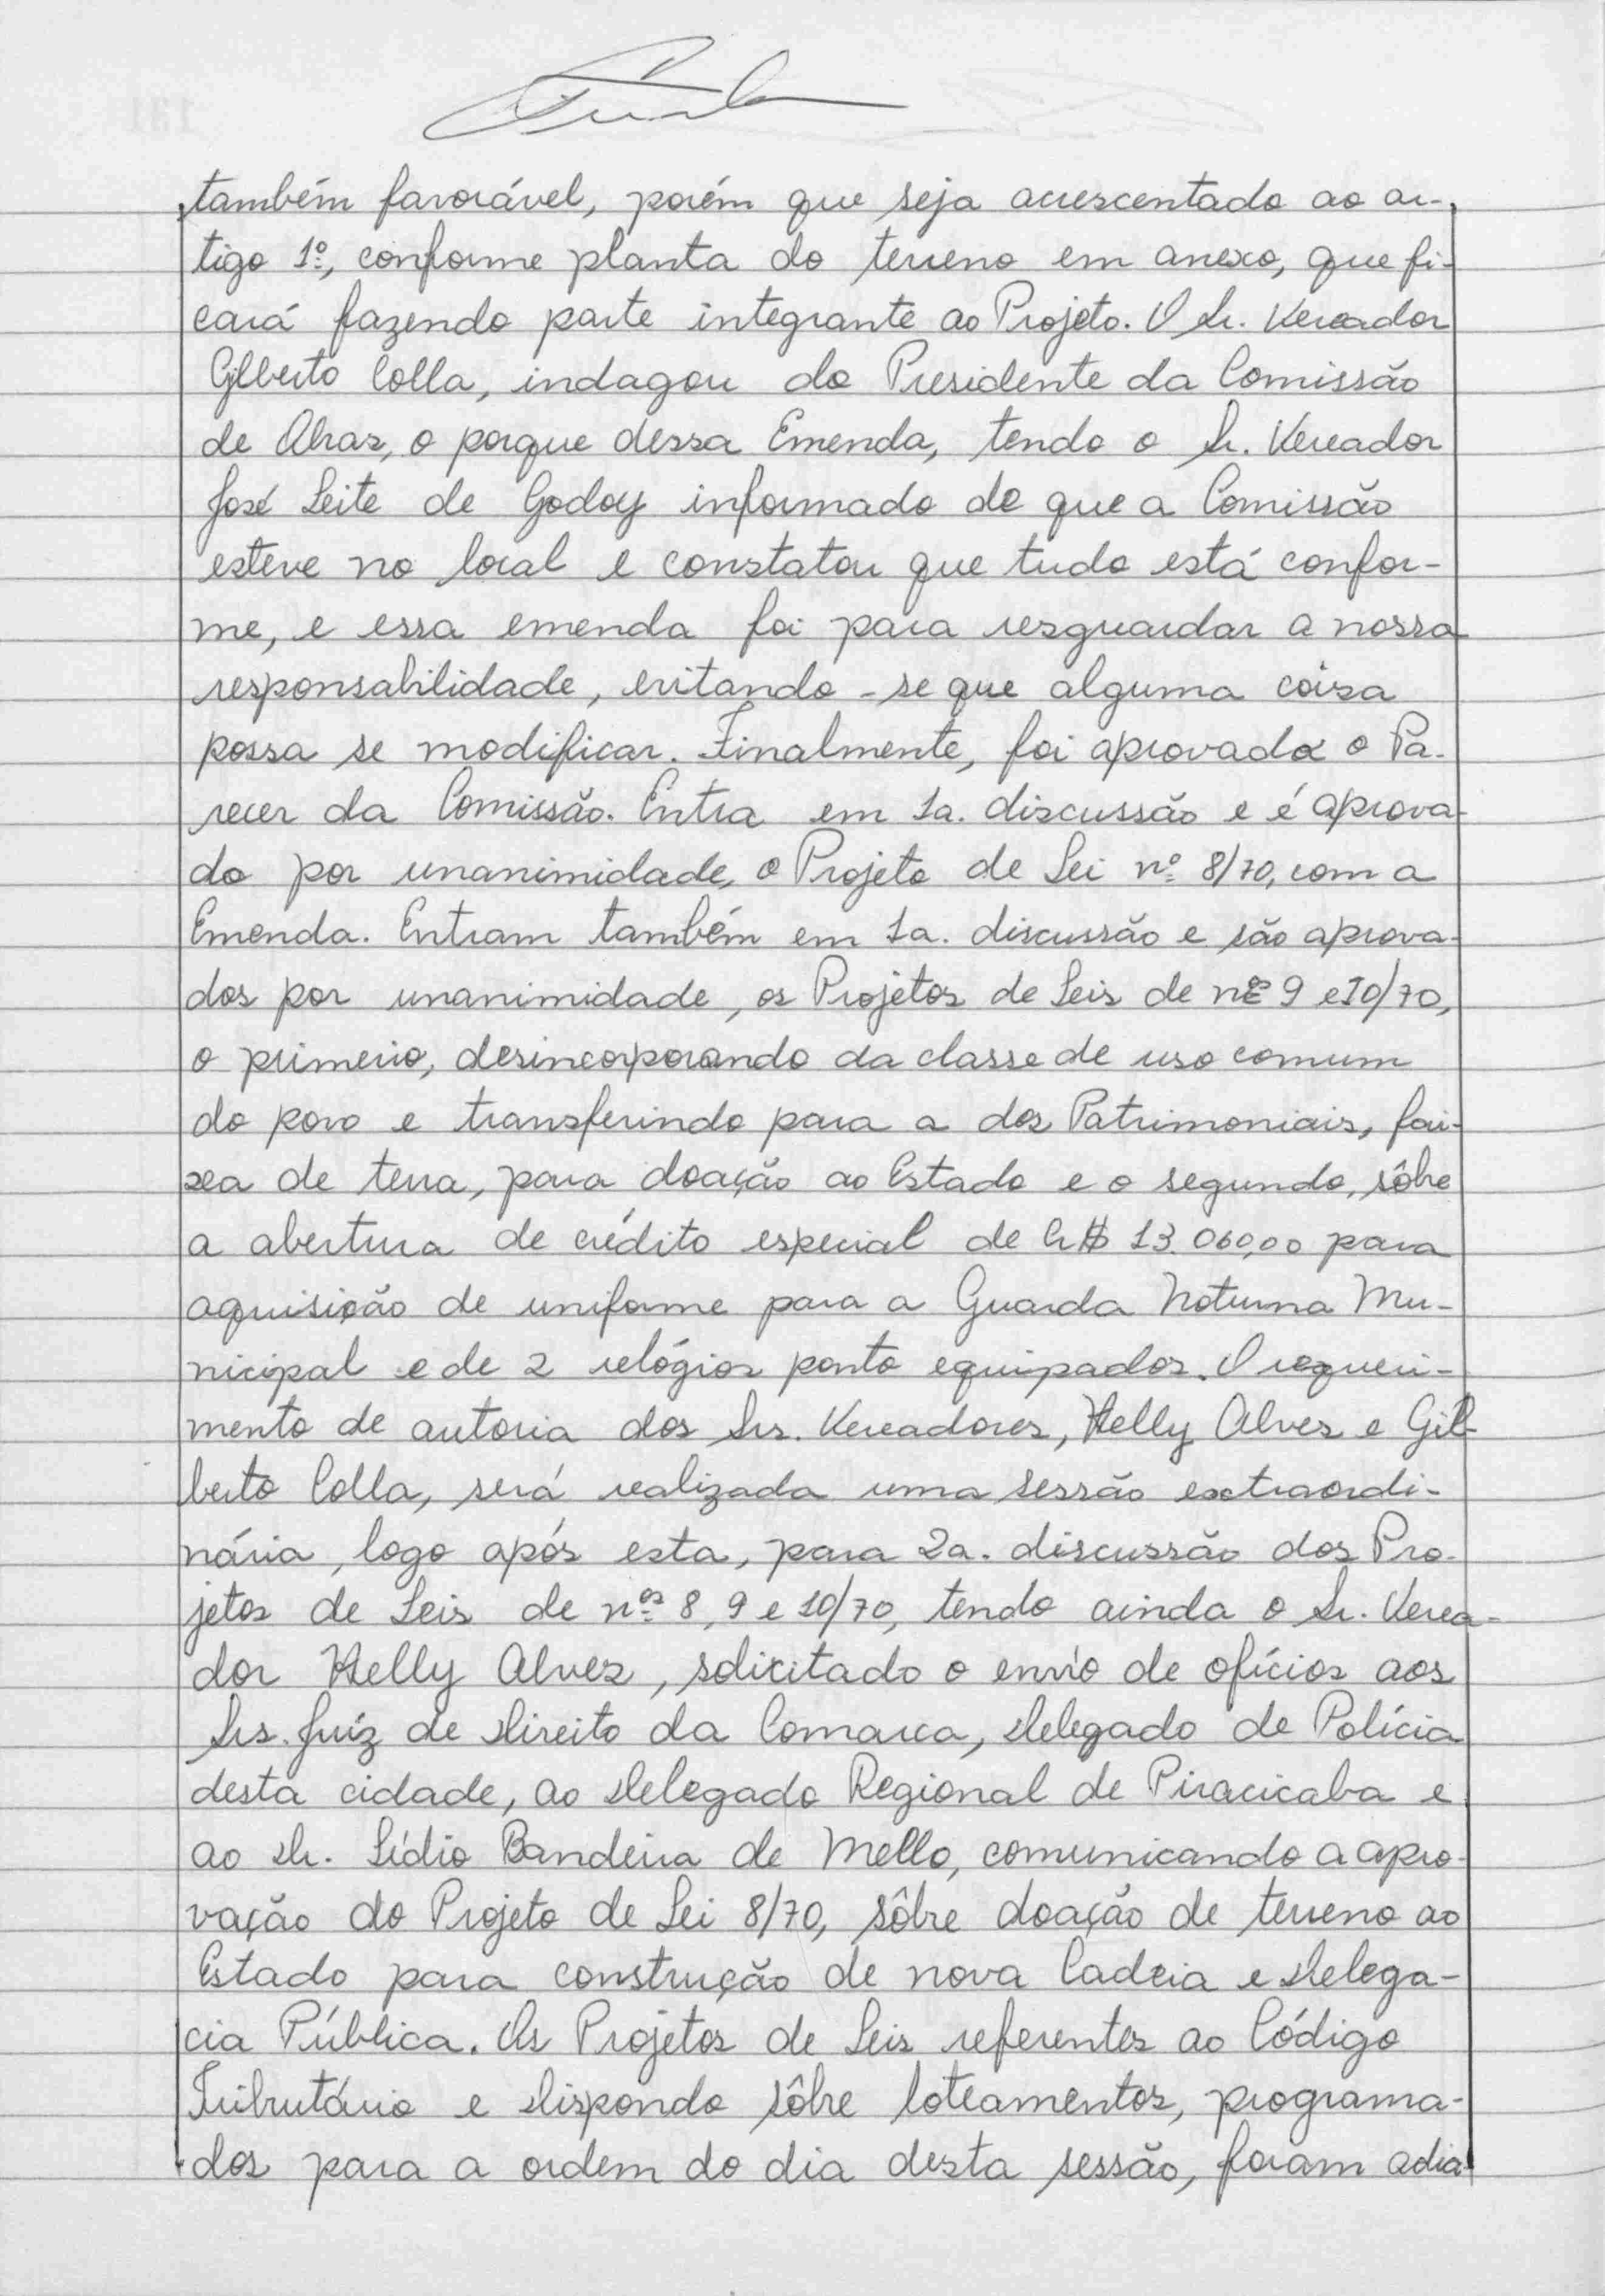 também favorável, porém que seja acrescentado ao ar-
tigo 1º, conforme planta do terreno em anexo, que fi-
cará fazendo parte integrante ao Projeto. O Sr. Vereador
Gilberto Colla, indagou do Presidente da Comissão
de Obras, o porque dessa Emenda, tendo o Sr. Vereador
José Leite de Godoy informado de que a Comissão
esteve no local e constatou que tudo está confor-
me, e essa emenda foi para resguardar a nossa
responsabilidade, evitando-se que alguma coisa
possa se modificar. Finalmente, foi aprovado o Pa-
recer da Comissão. Entra em 1a. discussão e é aprova-
do por unanimidade, o Projeto de Lei nº 8/70, com a
Emenda. Entram também em 1a. discussão e são aprova-
dos por unanimidade, os Projetos de Leis de nºs 9 e 10/70,
o primeiro, desincorporando da classe de uso comum
do povo e transferindo para a dos Patrimoniais, fai-
xa de terra, para doação ao Estado e o segundo, sôbre
a abertura de crédito especial de Cr$ 13.060,00 para
aquisição de uniforme para a Guarda Noturna Mu-
nicipal e de 2 relógios ponto equipados. O requeri-
mento de autoria dos Srs. Vereadores, Helly Alves e Gil-
berto Colla, será realizada uma sessão extraordi-
nária, logo após esta, para 2a. discussão dos Pro-
jetos de Leis de nºs 8, 9 e 10/70, tendo ainda o Sr. Verea-
dor Helly Alves, solicitado o envio de ofícios aos
Srs. Juíz de Direito da Comarca, Delegado de Polícia
desta cidade, ao Delegado Regional de Piracicaba e
ao Dr. Lídio Bandeira de Mello, comunicando a apro-
vação do Projeto de Lei 8/70, sôbre doação de terreno ao
Estado para construção de nova Cadeia e Delega-
cia Pública. Os Projetos de Leis referentes ao Código
Tributário e dispondo sôbre loteamentos, programa-
dos para a ordem do dia desta sessão, foram adia-